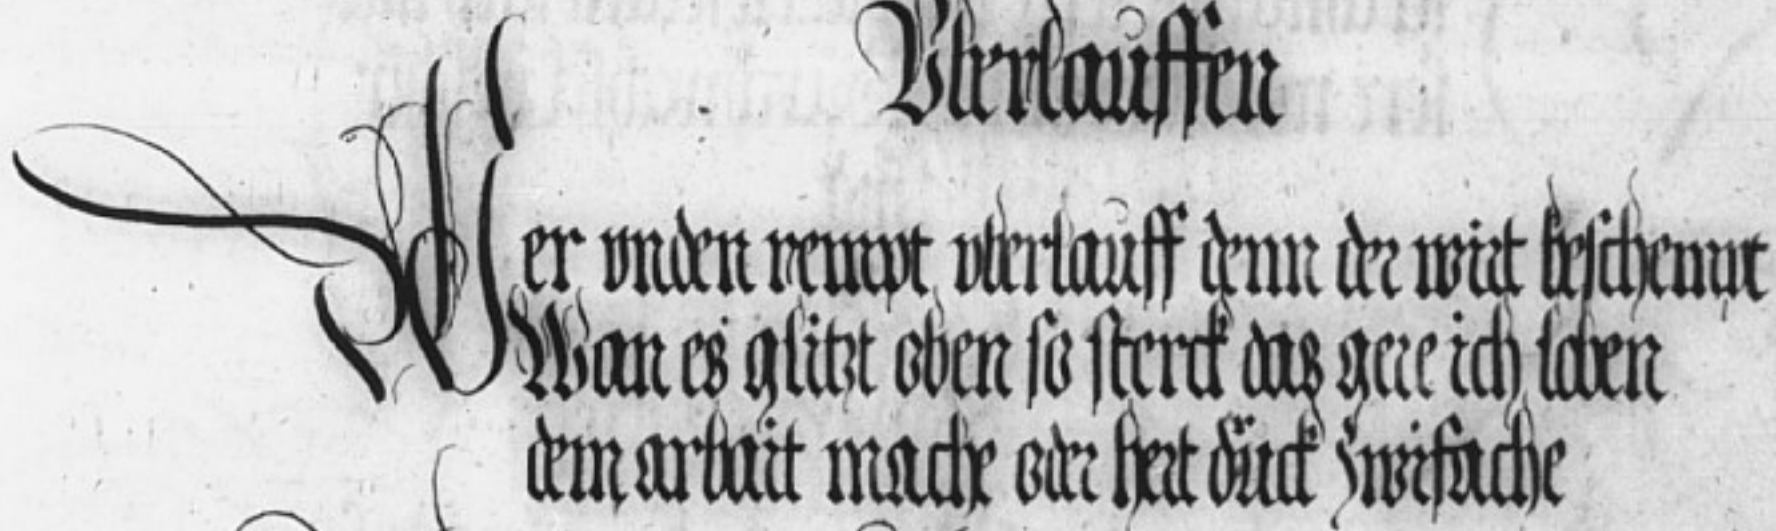 Vberlauffen
Wer vnden rempt vberlauff denn der wirt beschempt
Wan es glitzt oben so sterck das gere ich loben
dem arbait mache oder hert druck zwifache